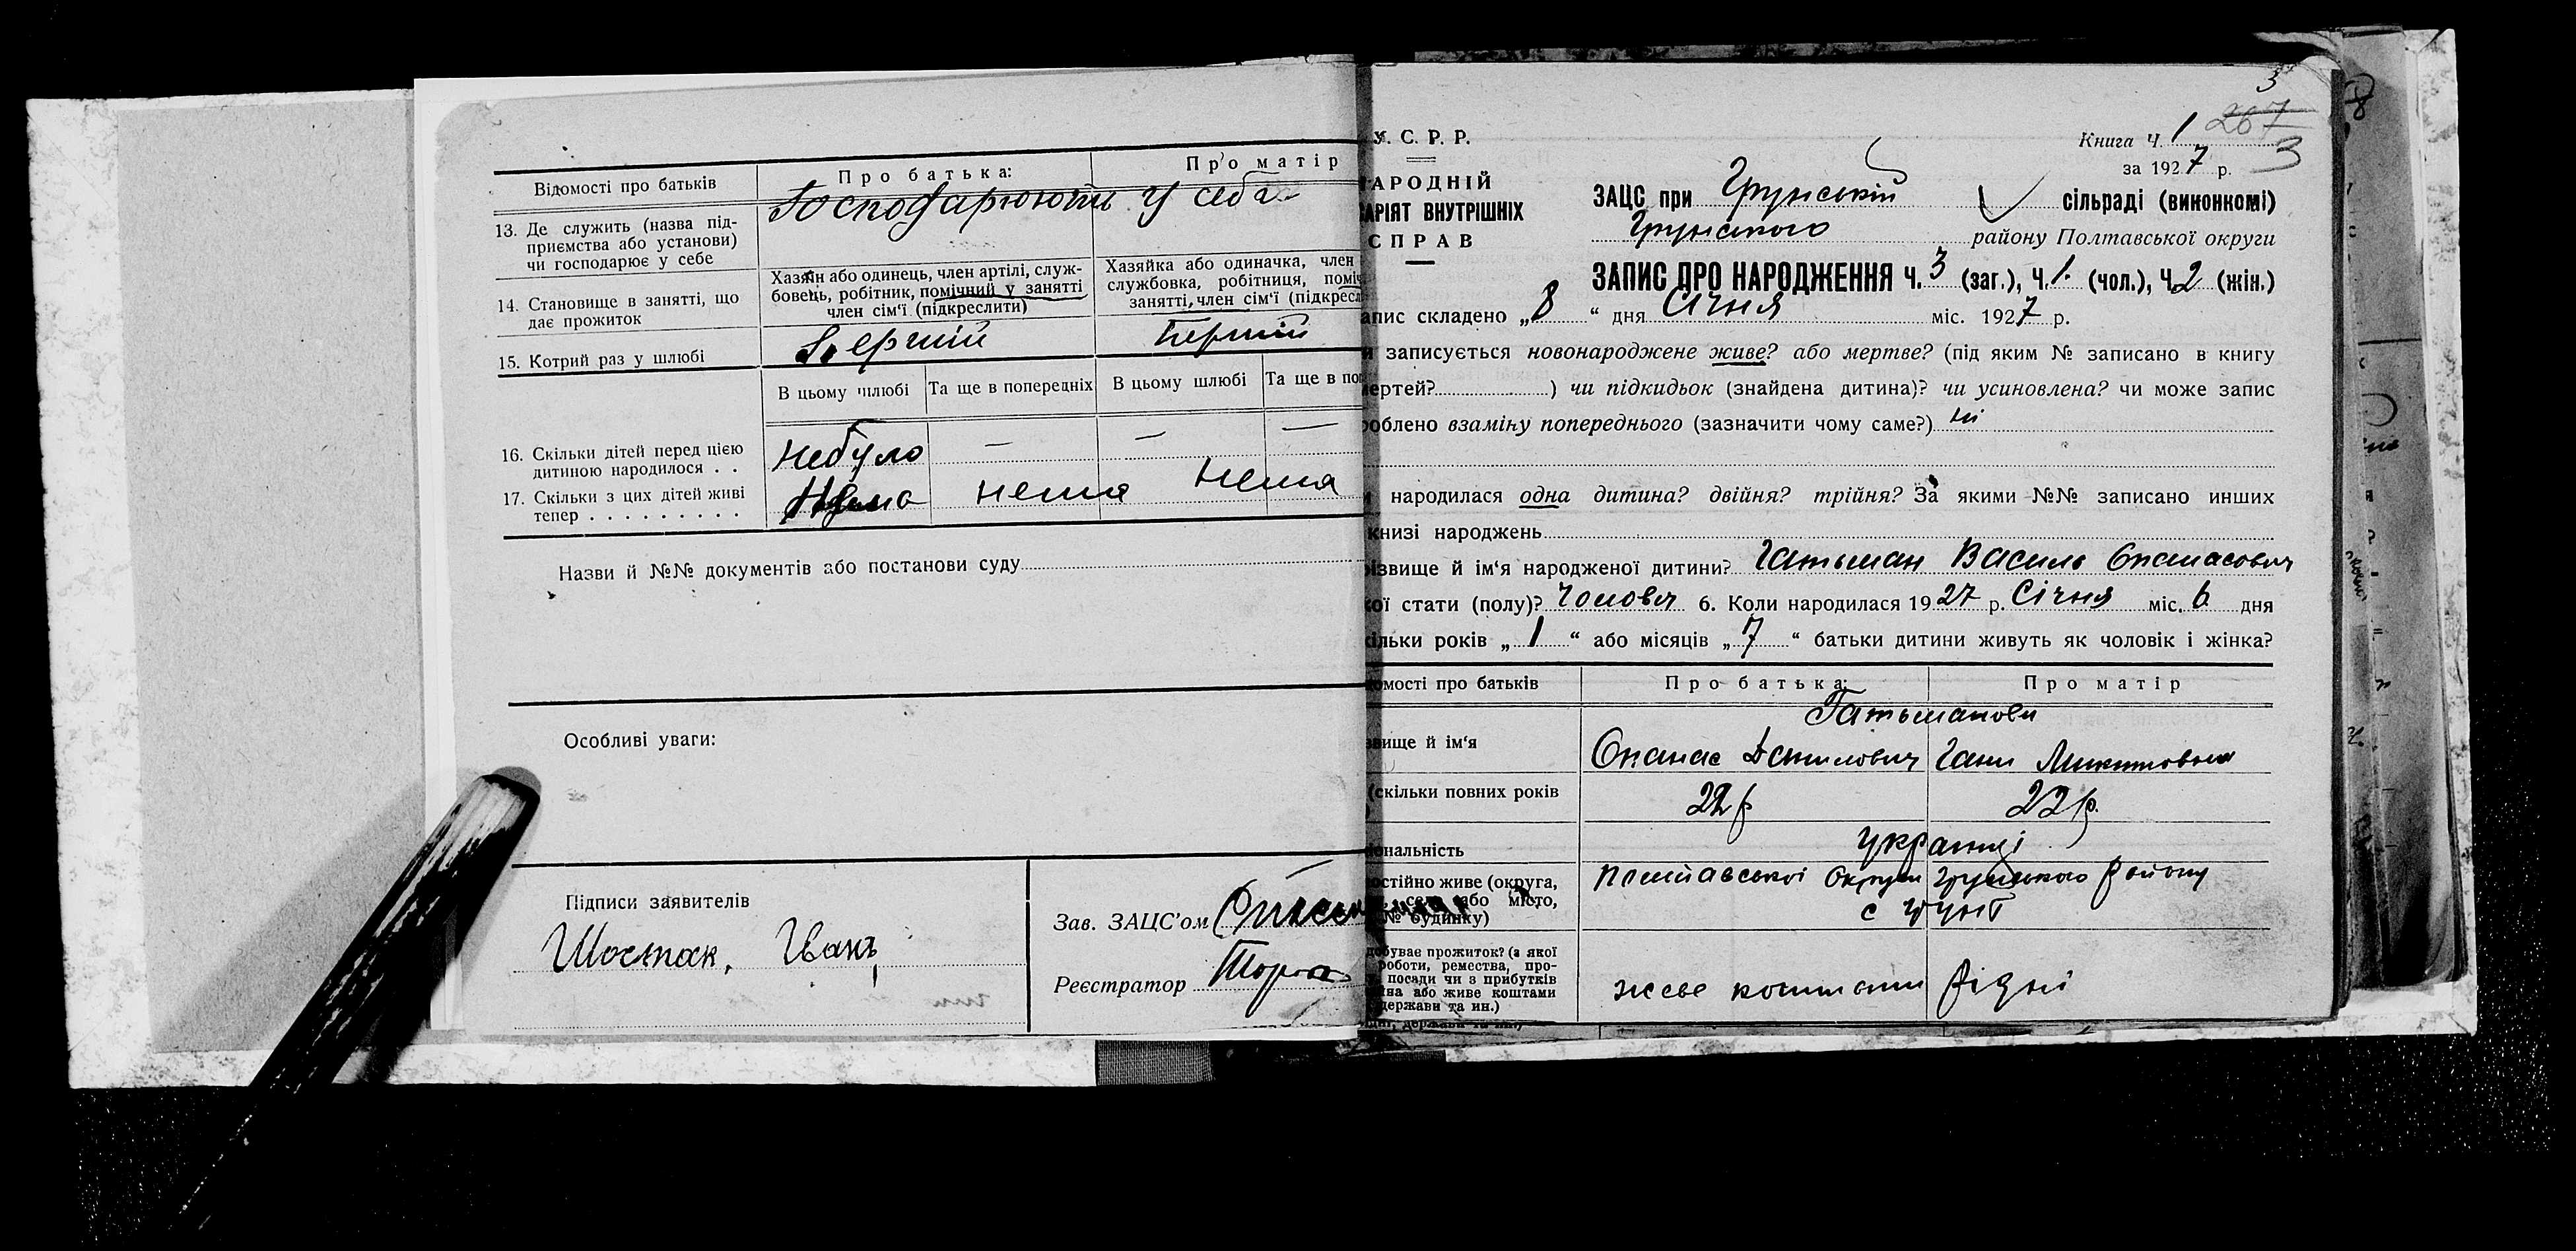 Відомості про батьків
Про батька:
Про матір
13. Де служить (назва під-
приємства або установи)
чи господарює у себе
Господарюють у себе
14. Становище в занятті, що
дає прожиток
Хазяїн або одинець, член артілі, служ-
бовець, робітник, помічний у занятті
член сім'ї (підкреслити)
Хазяйка або одиначка, член
службовка, робітниця, поміч
занятті, член сім'ї (підкресл
15. Котрий раз у шлюбі
Перший
Перший
В цьому шлюбі
Та ще в попередніх
В цьому шлюбі
Та ще в поп
16. Скільки дітей перед цією
дитиною народилося . .
Небуло — — —
17. Скільки з цих дітей живі
тепер . . . . . . . . .
Нема нема нема
Назви й №№ документів або постанови суду
Особливі уваги:
Підписи заявителів
Шостак, Іванъ
Зав. ЗАЦС'ом
Реєстратор
3
267
3
У. С. Р. Р.
АРОДНІЙ
АРІЯТ ВНУТРІШНІХ
СПРАВ
Книга Ч. 1
за 1927 р.
ЗАЦС при Грунській сільраді (виконкомі)
Грунського району Полтавської округи
ЗАПИС ПРО НАРОДЖЕННЯ Ч. 3 (заг.), Ч. 1 (чол.), Ч. 2 (жін.)
апис складено „8“ дня Січня міс. 1927 р.
и записується новонароджене живе? або мертве? (під яким № записано в книгу
ертей? ) чи підкидьок (знайдена дитина)? чи усиновлена? чи може запис
облено взаміну попереднього (зазначити чому саме?) ні
народилася одна дитина? двійня? трійня? За якими №№ записано инших
книзі народжень
ізвище й ім'я народженої дитини? Гатьман Василь Опанасович
ої стати (полу)? Чоловіч 6. Коли народилася 1927 р. Січня міс. 6 дня
ільки років „1“ або місяців „7“ батьки дитини живуть як чоловік і жінка?
омості про батьків
Про батька:
Про матір
Гатьманови
вище й ім'я
Опанас Данилович
Ганна Микитовна
(скільки повних років
22 р
22 р.
ональність
Украинці
остійно живе (округа,
село або місто,
№ будинку)
Полтавської Округи Грунського району
с Грунь
добуває прожиток? (з якої
роботи, ремества, про-
посади чи з прибутків
їна або живе коштами
держави та ин.)
живе коштами рідні